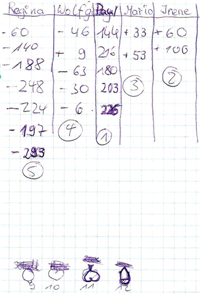 Regina Wolfg. Paul Mario Irene
-60 -46 144 +33 +60
-140 + 9 216 +53 +106
-188 -63 180 ③ ②
-248 -30 203
-224 -6
-197 ④ ①
⑤
9 10 11 12